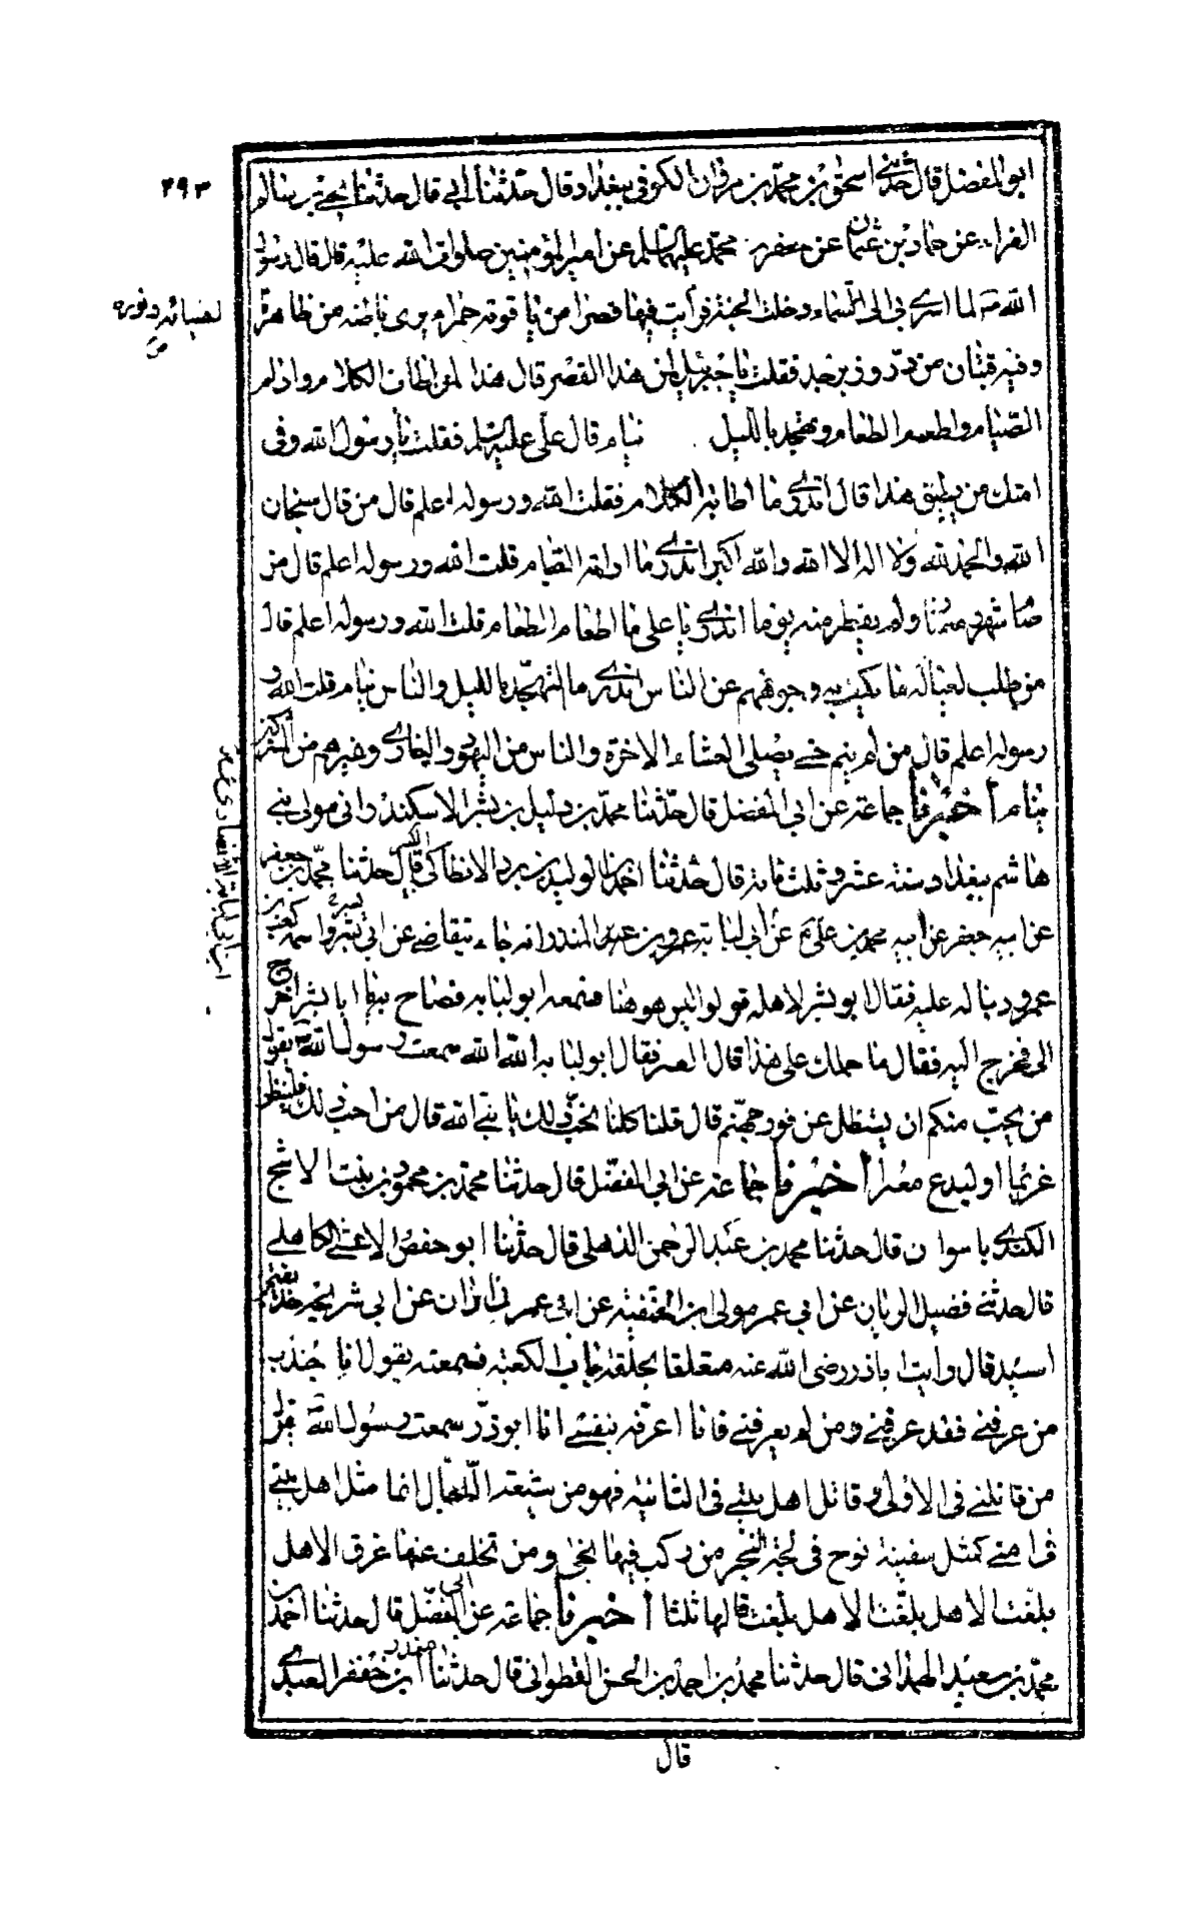 ٢٩٣
ابو المفضل قال حدثنى اسحق بن محمد بن مروان الكوفى ببغداد قال حدثنا ابى قال حدثنا يحيى بن سالم
الفراء عن حماد بن عثمان عن جعفر بن محمد عليهما السلم عن امير المؤمنين صلوات الله عليه قال قال رسول
الله ص لما اسرى بى الى السماء دخلت الجنة فرأيت فيها قصرا من ياقوتة حمراء يرى باطنه من ظاهره
لضيائه ونوره
وفيه قبتان من در وزبرجد فقلت يا جبرئيل لمن هذا القصر قال هذا لمن اطاب الكلام وادام
الصيام واطعم الطعام وتهجد بالليل نيام قال على عليه السلم فقلت يا رسول الله وفى
امتك من يطيق هذا قال اتدرى ما اطابة الكلام فقلت الله ورسوله اعلم قال من قال سبحان
الله والحمد لله ولا اله الا الله والله اكبر اتدرى ما ادامة الصيام قلت الله ورسوله اعلم قال من
صام شهر رمضان ولم يفطر منه يوما اتدرى يا على ما اطعام الطعام قلت الله ورسوله اعلم قال
من طلب لعياله ما يكف به وجوههم عن الناس اتدرى ما التهجد بالليل والناس نيام قلت الله و
رسوله اعلم قال من لم ينم حتى يصلى العشاء الاخرة والناس من اليهود والنصارى وغيرهم من المشركين
نيام أخبرنا جماعة عن ابى المفضل قال حدثنا محمد بن دليل بن بشر الاسكندرانى مولى بنى
هاشم ببغداد سنة عشر وثلثمائة قال حدثنا احمد بن الوليد بن برد الانطاكى قال حدثنا محمد بن جعفر
عن ابيه جعفر عن ابيه محمد بن على ع عن ابى لبابة بن عبد المنذر انه جاء يتقاضى عن ابى بشر واسمه كعب بن
عمرو دينا له عليه فقال ابو بشر لاهله قولوا ليس هو هنا فسمعه ابو لبابه فصاح به يا ابا بشر اخرج
الى فخرج اليه فقال ما حملك على هذا قال العسر فقال ابو لبابه الله الله سمعت رسول الله يقول
من يحب منكم ان يستظل عن فور جهنم قال قلنا كلنا نحب ذلك يا نبى الله قال من احب ذلك فلينظر
غريما او ليدع معسرا أخبرنا جماعة عن ابى المفضل قال حدثنا محمد بن محمود بن بنت الاشج
الكندى باسوان قال حدثنا محمد بن عبد الرحمن الذهلى قال حدثنا ابو حفص الاعشى الكاهلى
قال حدثنى فضيل الرسان عن ابى عمر مولى ابن الحنفية عن ابى عمر زاذان عن ابى شريحة حذيفة بن
اسيد قال رأيت اباذر رضى الله عنه متعلقا بحلقة باب الكعبة فسمعته يقول انا جندب
من عرفنى فقد عرفنى ومن لم يعرفنى فانا اعرفه بنفسى انا ابو ذر سمعت رسول الله يقول
من قاتلنى فى الاولى وقاتل اهل بيتى فى الثانية فهو من شيعة الدجال انما مثل اهل بيتى
فى امتى كمثل سفينة نوح فى لجة البحر من ركب فيها نجى ومن تخلف عنها غرق الا هل
بلغت الا هل بلغت الا هل بلغت قالها ثلثا أخبرنا جماعة عن ابى المفضل قال حدثنا احمد بن
محمد بن سعيد الهمدانى قال حدثنا محمد بن احمد بن الحسن القطوانى قال حدثنا بن جعفر العبدى
قال